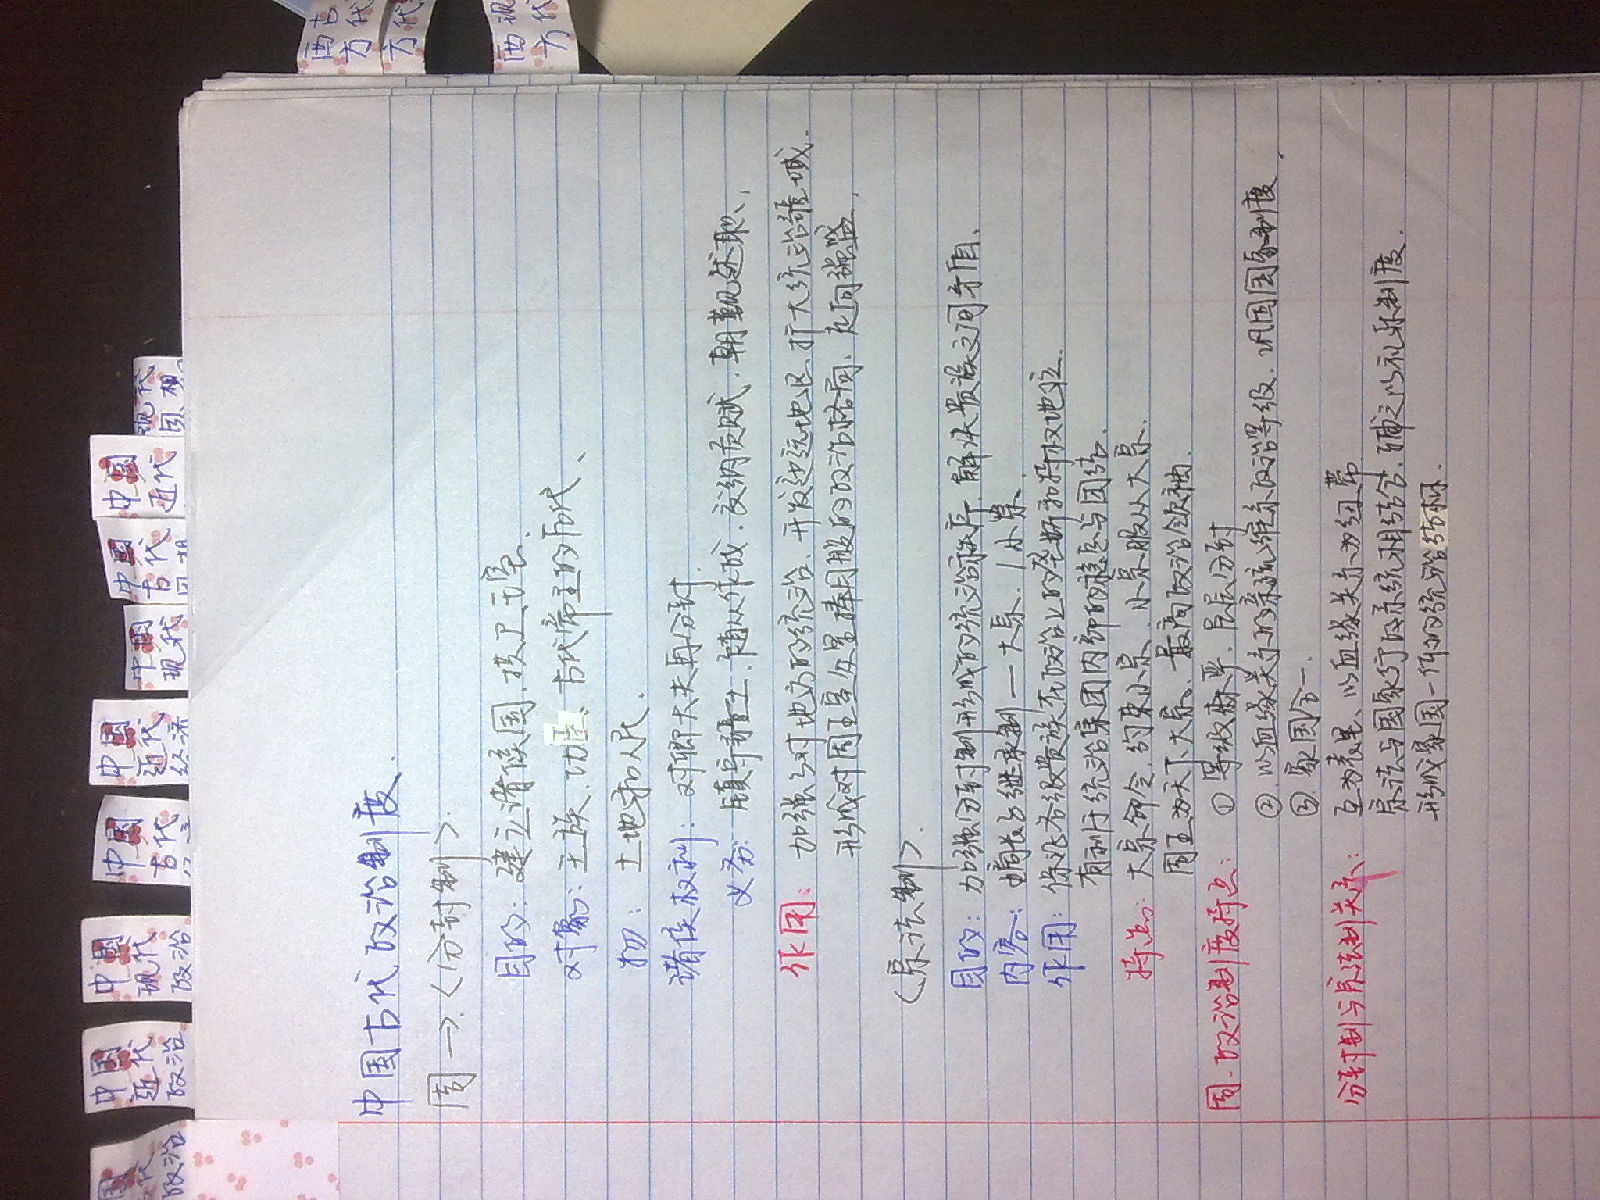 中国古代政治制度.
周→〈分封制〉.
目的:建立诸侯国,拱卫王室.
对象:王族、功臣、古代帝王的后代、
土地和人民、
诸侯权利:对卿大夫再分封.
义务:镇守疆土、随从作战、交纳贡赋、朝觐述职、
作用:加强对地方的统治、开发边远地区、扩大统治区域.
形成对周王室众星捧月般的政治格局、走向强盛、
〈宗法制〉
目的:加强分封制形成的统治秩序,解决贵族之间矛盾、
内容:嫡长子继承制—大宗、小宗
作用:保证各级贵族在政治上的垄断和特权地位.
有利于统治集团内部的稳定与团结.
特点:大宗命令、约束小宗、小宗服从大宗.
周王为天下大宗、最高政治领袖.
周·政治制度特点:①等级森严,层层分封
②以血缘关系的亲疏维系政治等级、巩固国家制度、
③家国合一.
分封制与宗法制关系:互为表里、以血缘关系为纽带
宗法与国家行政系统相结合、辅之以礼乐制度.
形成家国一体的统治结构.
中国
近代
政治
中国
现代
政治
中国
古代
中国
近代
经济
中国
现代
中国
古代
中国
近代
现代
西方
古代
西方
现代